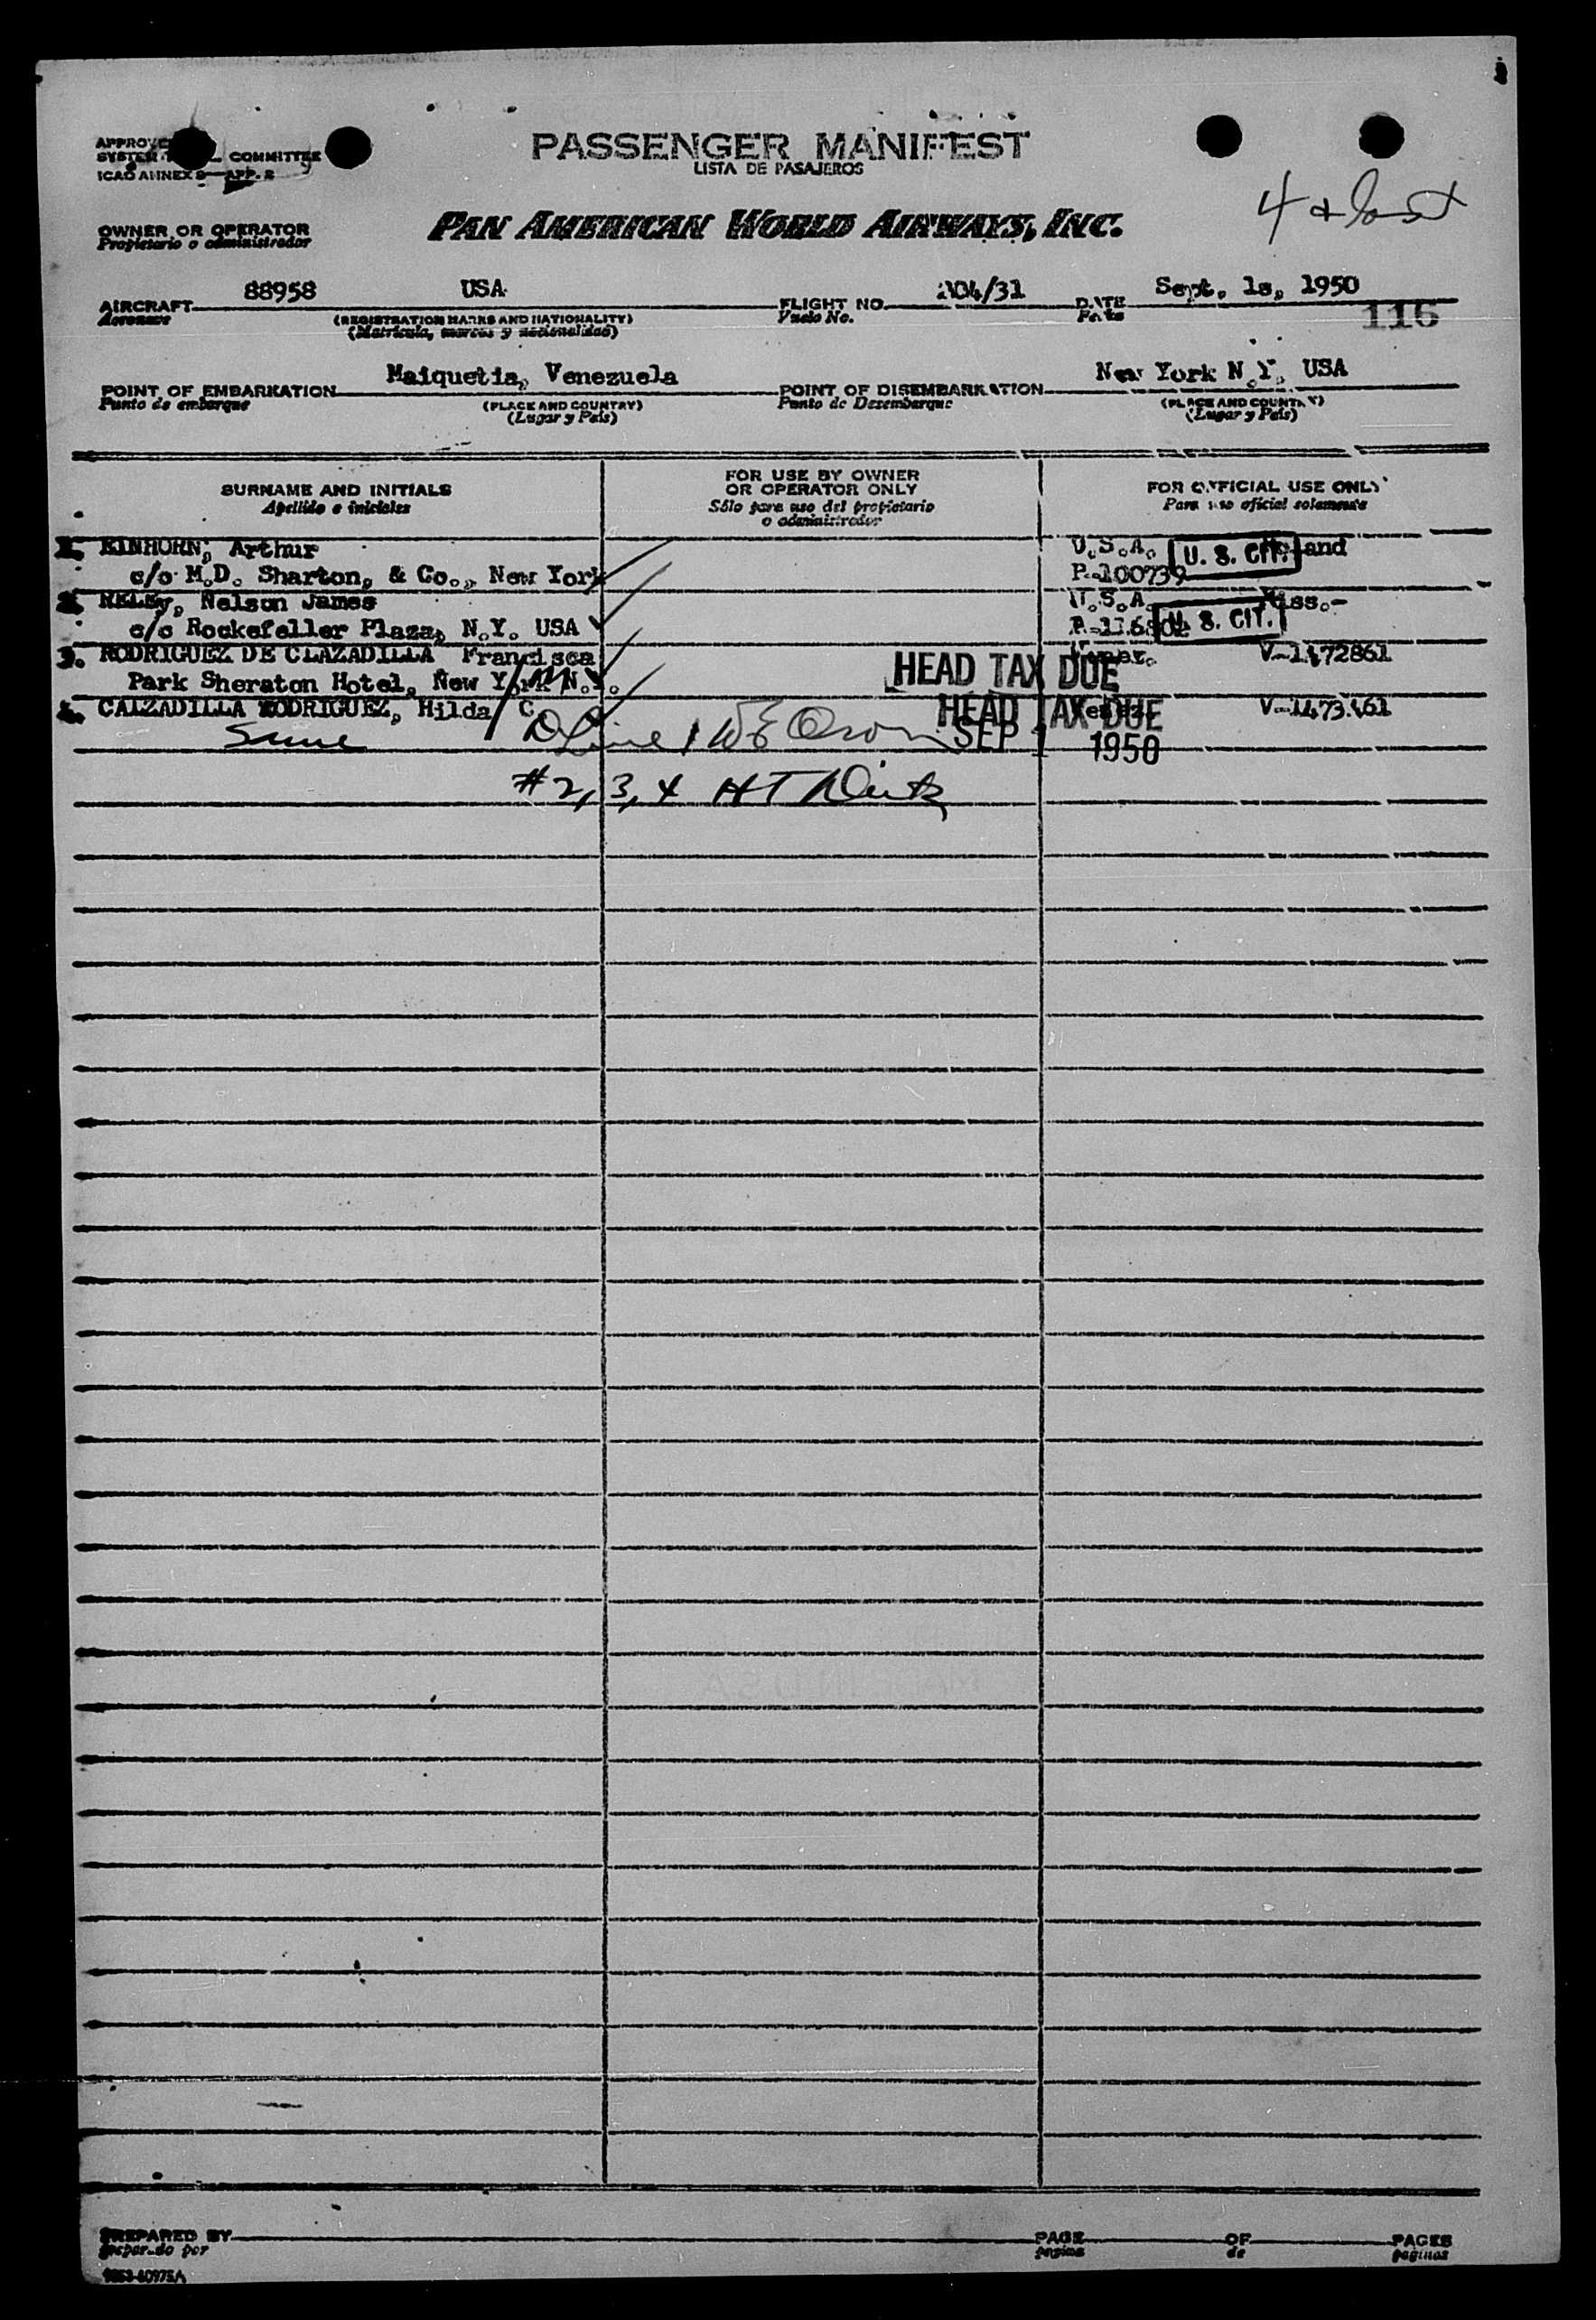 PASSENGER MANIFEST
LISTA DE PASAJEROS
COMMITTEE
4 & last
OWNER OR OPERATOR
Propietario o administrador
PAN AMERICAN WORLD AIRWAYS, INC.
88958 USA 204/31 Sept. 1s, 1950
AIRCRAFT (REGISTRATION MARKS AND NATIONALITY) FLIGHT NO. DATE
Aeronave (Matrícula, marcas y nacionalidad) Vuelo No. Fecha
115
Maiquetia, Venezuela New York N.Y. USA
POINT OF EMBARKATION (PLACE AND COUNTRY) POINT OF DISEMBARKATION (PLACE AND COUNTRY)
Punto de embarque (Lugar y País) Punto de Desembarque (Lugar y País)
SURNAME AND INITIALS
Apellido e iniciales
FOR USE BY OWNER
OR OPERATOR ONLY
Sólo para uso del propietario
o administrador
FOR OFFICIAL USE ONLY
Para uso oficial solamente
1. EINHORN, Arthur U.S.A. U. S. CIT. and
c/o M.D. Sharton, & Co., New York P-100739
2. Nelson James U.S.A. Miss.-
c/o Rockefeller Plaza, N.Y. USA U. S. CIT.
3. RODRIGUEZ DE CLAZADILLA Francisca V-1472861
Park Sheraton Hotel, New York N.Y. HEAD TAX DUE
4. CALZADILLA RODRIGUEZ, Hilda C. HEAD TAX DUE
Same Line 1 SEP 1 1950
#2, 3, 4 HT
PREPARED BY PAGE OF PAGES
Preparado por pagina de paginas